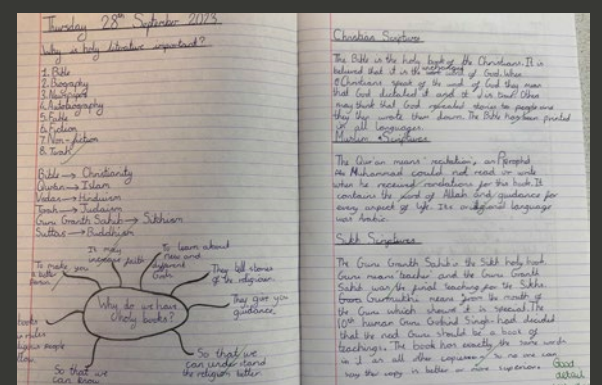 Thursday 28th September 2023
Why is holy literature important?
1. Bible
2. Biography
3. Newspaper
4. Autobiography
5. Fable
6. Fiction
7. Non-fiction
8. Torah
Bible → Christianity
Quran → Islam
Vedas → Hinduism
Torah → Judaism
Guru Granth Sahib → Sikhism
Suttas → Buddhism
It may
increase faith
To learn about
new and
different
Gods.
To make you
a better
person.
They tell stories
of the religion.
Why do we have
holy books?
They give you
guidance.
books
rules
people
So that we
can know
So that we
can understand
the religion better.
Christian Scripture
The Bible is the holy book of the Christians. It is
believed that it is the unchanged word of God. When
Christians speak of the word of God they mean
that God dictated it and it is True. Others
may think that God revealed stories to people and
they wrote them down. The Bible has been printed
in all languages.
Muslim Scriptures
The Qur'an means 'recitation', as Prophet
Muhammad could not read or write
when he received revelations for this book. It
contains the word of Allah and guidance for
every aspect of life. Its original language
was Arabic.
Sikh Scriptures
The Guru Granth Sahib is the Sikh holy book.
Guru means 'teacher' and the Guru Granth
Sahib was the final teaching for the Sikhs.
Gurmukhi means from the mouth of
the Guru which shows it is special. The
10th human Guru Gobind Singh had decided
that the next Guru should be a book of
teachings. The book has exactly the same words
in it as all other copies so no one can
say their copy is better or more superior.
Good
detail